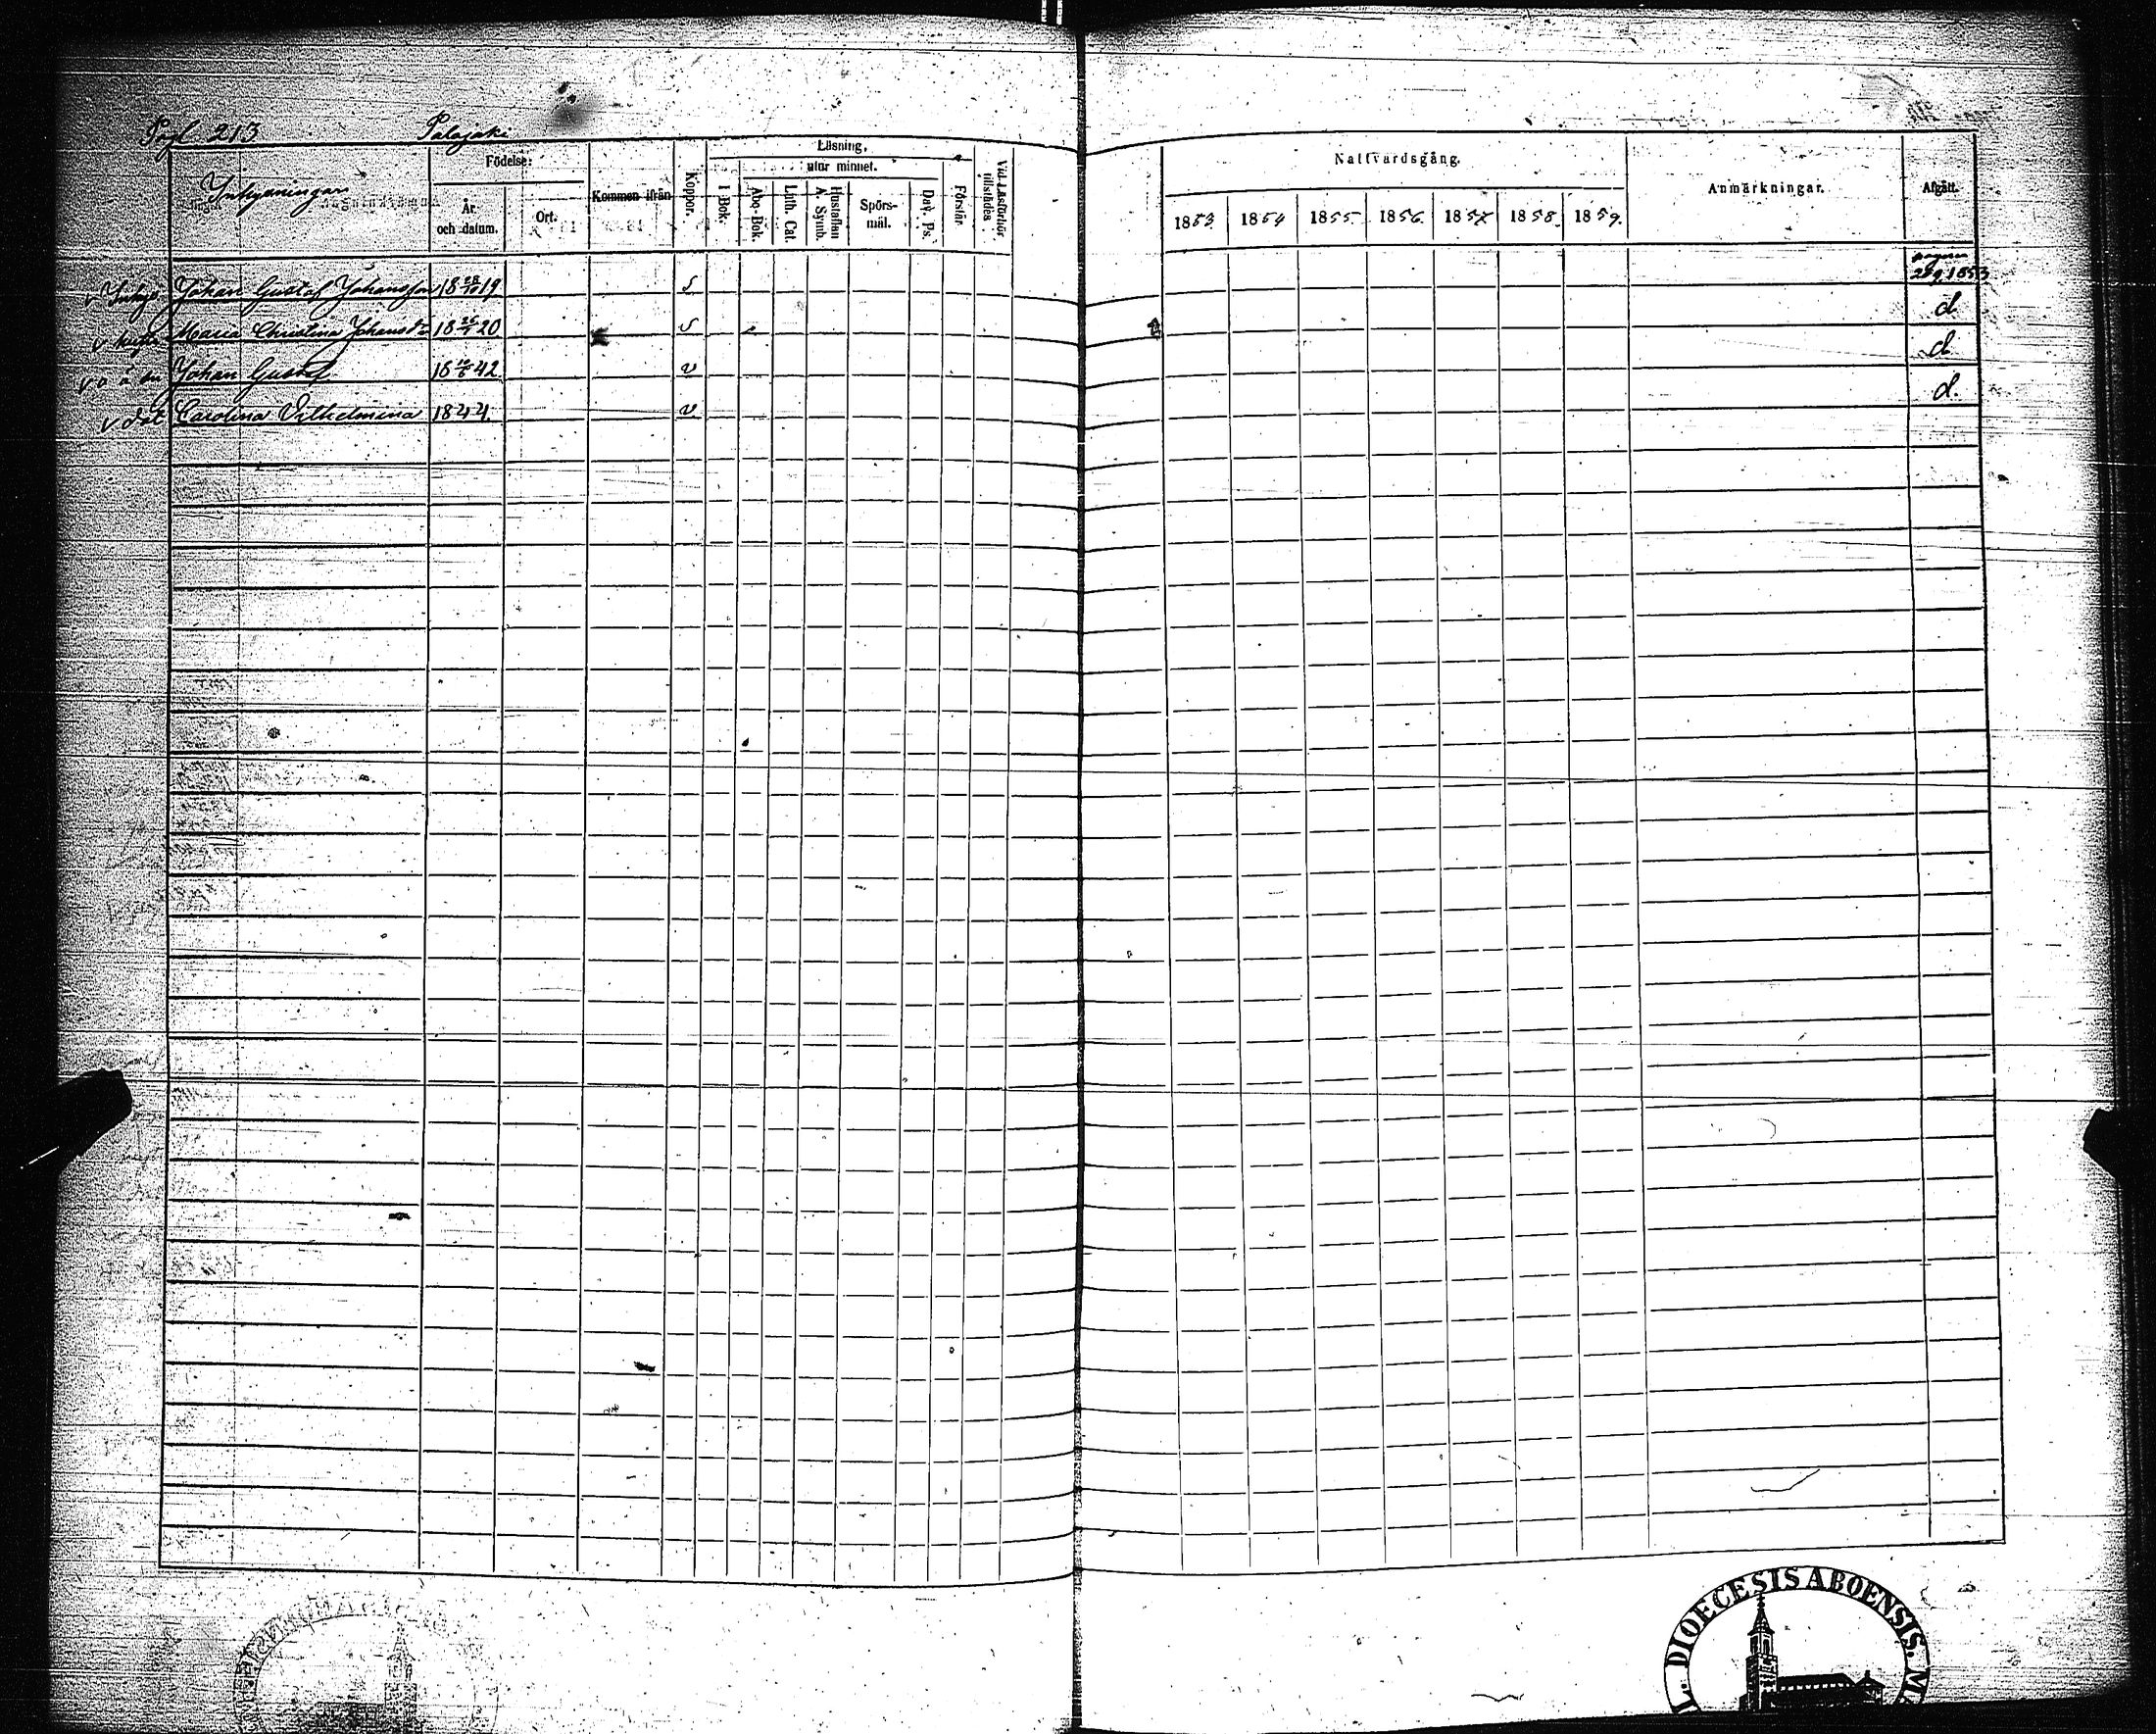 Pagl. 213 Palajoki
Inhysningar
Födelse:
År och datum.
Ort.
Kommen ifrån
Koppor.
Läsning,
utur minnet.
I Bok.
Abc-Bok.
Luth. Cat.
Hustaflan A. Symb.
Spörs-mål.
Dav. Ps.
Förstår
Vid Läsförhör tillstädes
Nattvardsgång.
1853 1854 1855 1856 1857 1858 1859
Anmärkningar.
Afgått.
v Inhys Johan Gustaf Johansson 18 19 s 1853
v hust Maria Christina Johansdr 18 20 s d
v Johan Gustaf 18 42 v d
v dot Carolina Vilhelmina 1844 v d.
L. DIOECESIS ABOENSIS. M